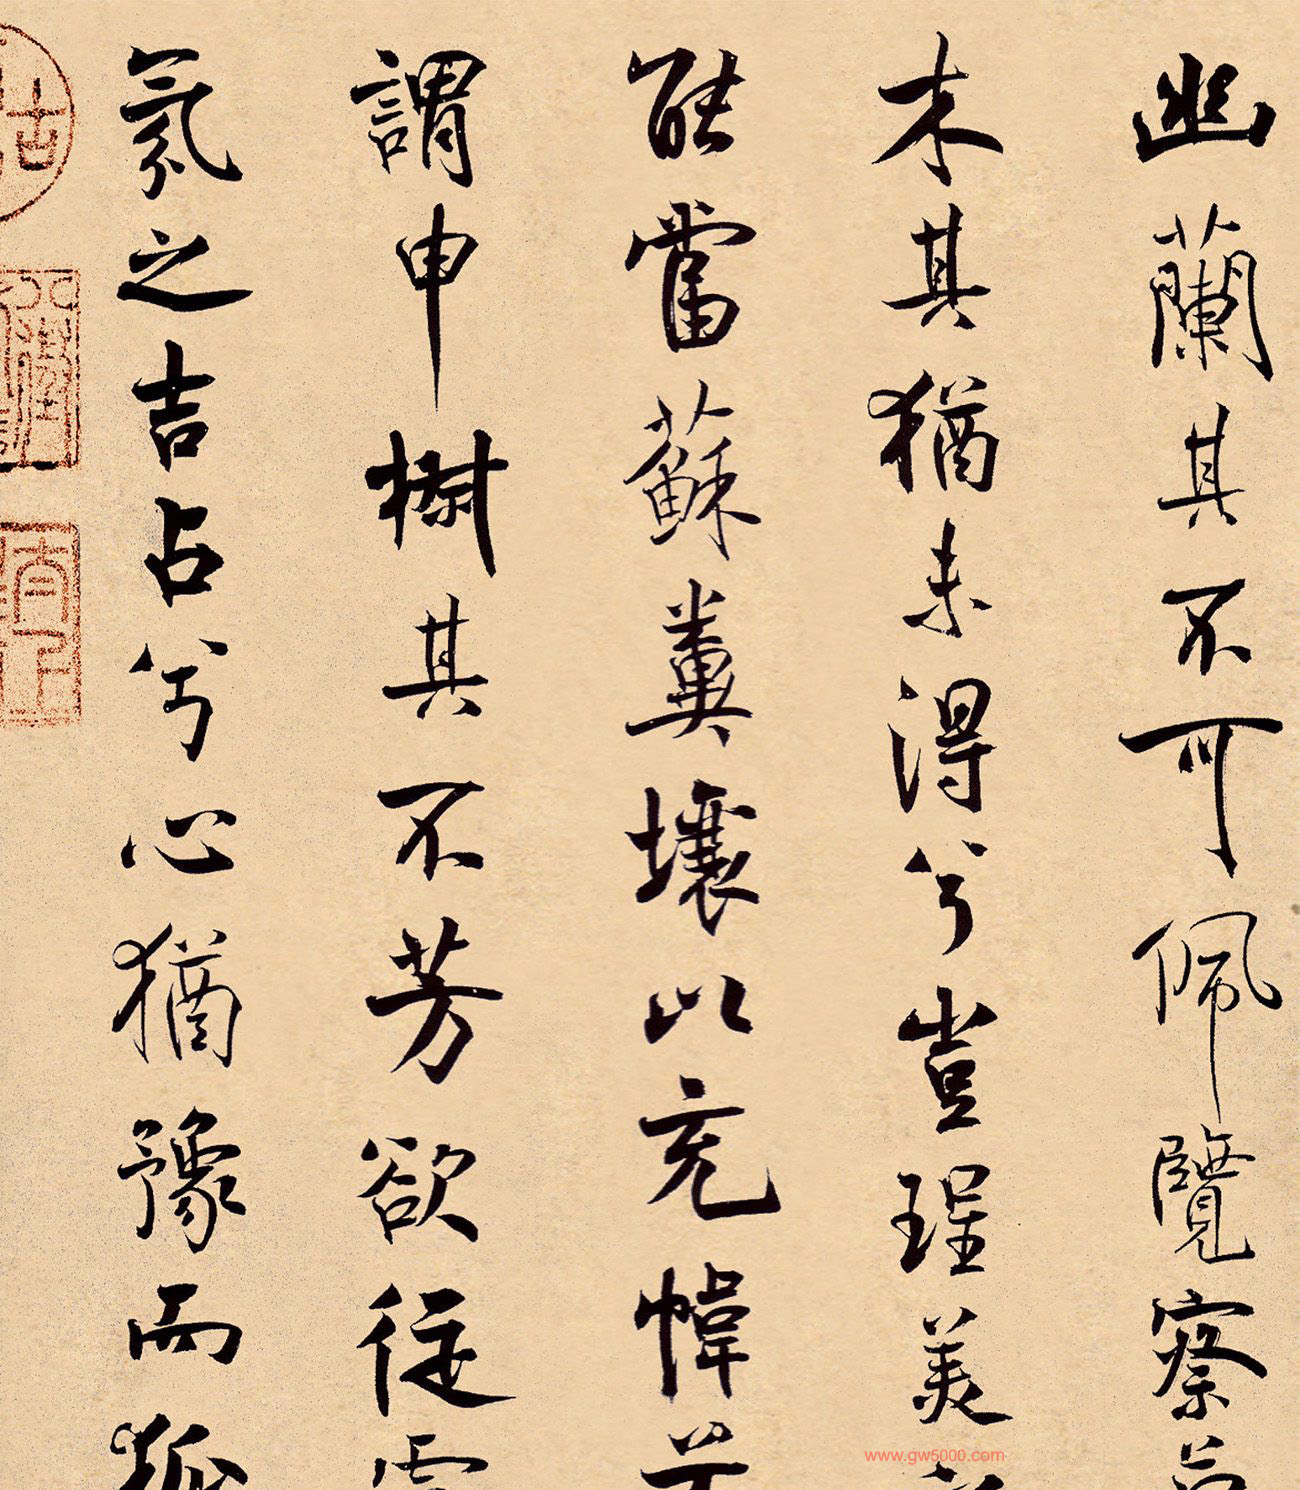 幽蘭其不可佩覽察草
木其猶未得兮豈珵美之
能當蘇糞壤以充幃兮
謂申椒其不芳欲從靈
氛之吉占兮心猶豫而狐
www.gw5000.com